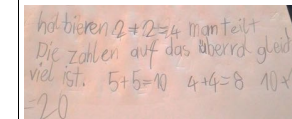 halbieren 2+2=4 man teilt
Die zahlen auf das überral gleich
viel ist. 5+5=10 4+4=8 10+
=20